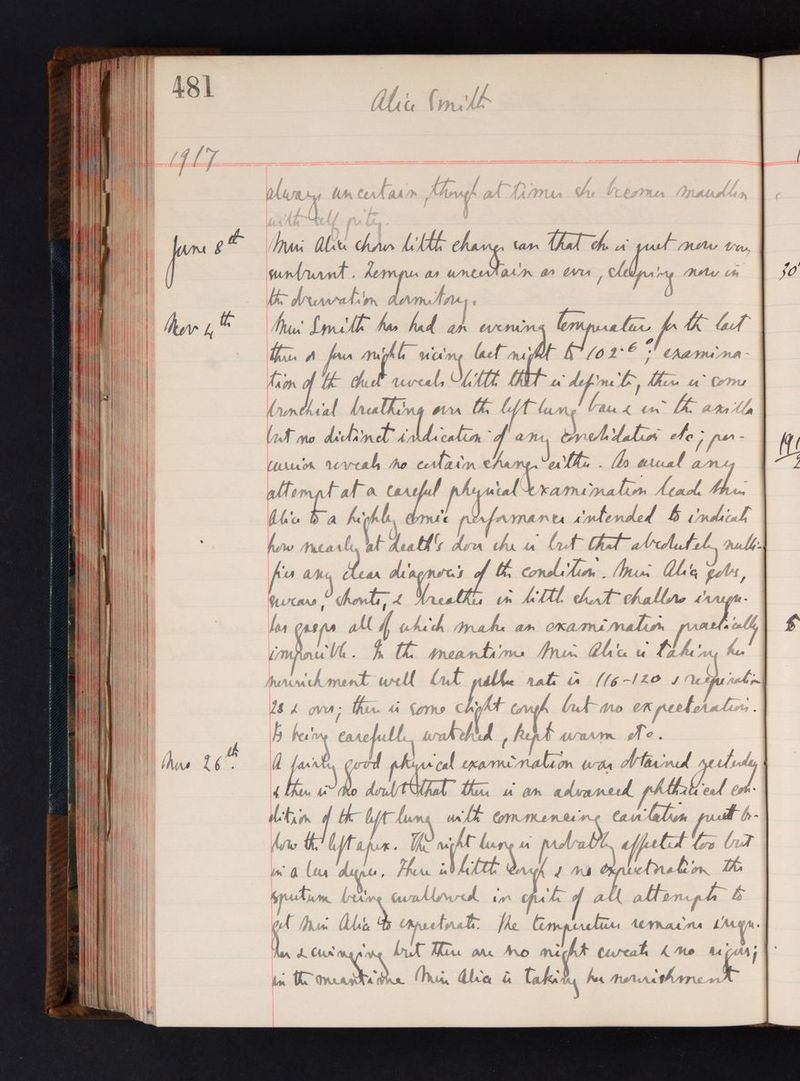 481
Alice Smith
1917
always uncertain, though at times she becomes maudlin
with self pity.
June 8th Miss Alice shows little change save that she is just now very
sunburnt. Temper as uncertain as ever, sleeping now in
the observation dormitory.
Nov 4th Miss Smith has had an evening temperature for the last
three or four nights rising last night to 102.6°; examina-
tion of the chest reveals little that is definite, there is some
bronchial breathing over the left lung base & in the axilla
but no distinct indication of any consolidation etc; per-
cussion reveals no certain change either. As usual any
attempt at a careful physical examination leads Miss
Alice to a highly comic performance intended to indicate
how nearly at death's door she is but that absolutely nulli-
fies any clear diagnosis of the condition. Miss Alice sobs,
swears, shouts, & breathes in little short shallow irregu-
lar gasps all of which make an examination practically
impossible. In the meantime Miss Alice is taking her
nourishment well but pulse rate is 116-120 & respiration
28 & over; there is some slight cough but no expectoration.
Is being carefully watched, kept warm etc.
Nov 26th. A fairly good physical examination was obtained yesterday
& there is no doubt that there is an advanced phthisical con-
dition of the left lung with commencing cavitation just be-
low the left apex. The right lung is probably affected too but
in a less degree. There is little cough & no expectoration the
sputum being swallowed in spite of all attempts to
get Miss Alice to expectorate. The temperature remains irregu-
lar & swinging but there are no night sweats & no rigors;
in the meantime Miss Alice is taking her nourishment
30